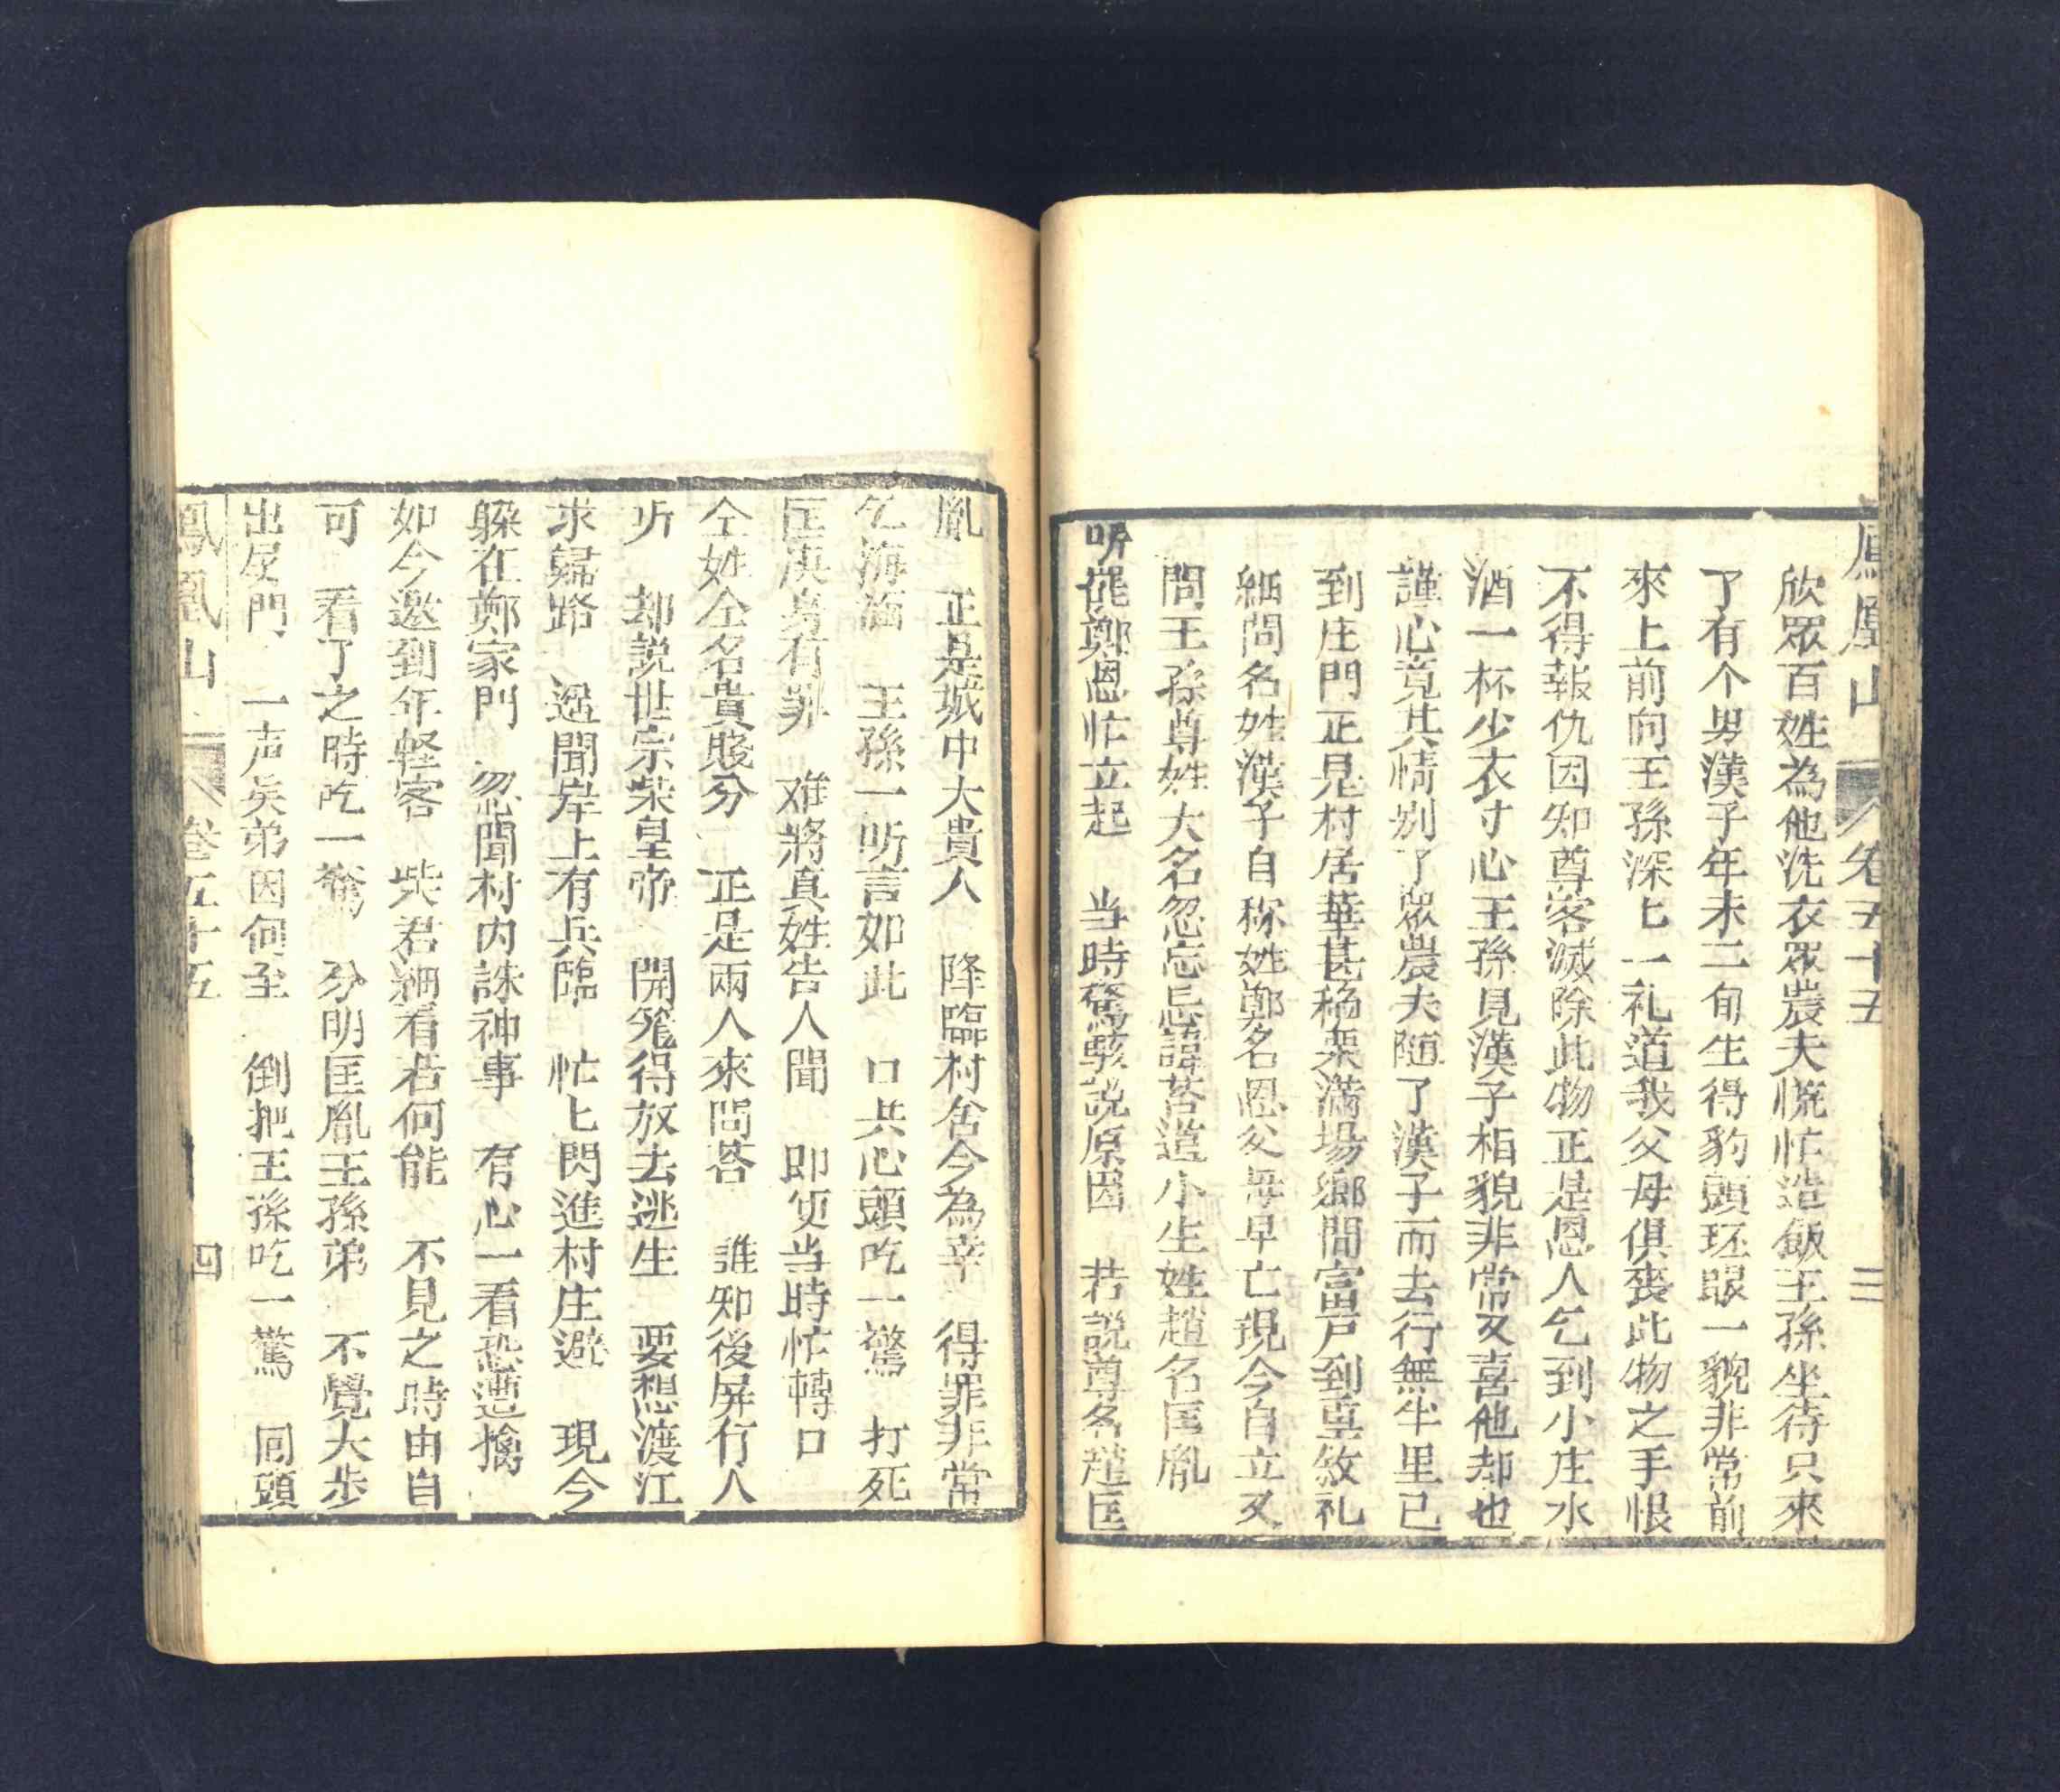 鳳凰山 卷五十五 三
欣眾百姓為他洗衣眾農夫慌忙造飯王孫坐待只來
了有个男漢子年未二旬生得豹頭环眼一貌非常前
來上前向王孫深匕一礼道我父母俱喪此物之手恨
不得報仇因知尊客滅除此物正是恩人乞到小庄水
酒一杯少衣寸心王孫見漢子相貌非常又喜他却也
謹心竟其情别了眾農夫随了漢子而去行無半里已
到庄門正見村居華甚稻粟滿場鄉間富戶到草敘礼
細問名姓漢子自称姓鄭名恩父母早亡現今自立又
問王孫尊姓大名忽忘忌諱荅道小生姓趙名匡胤
听罷鄭恩忙立起 当時驚駭説原因 若説尊名趙匡
胤 正是城中大貴人 降臨村舍今為幸 得罪非常
乞海涵 王孫一听言如此 口共心頭吃一驚 打死
匡庚身有罪 难將真姓告人聞 即便当時忙轉口
仝姓仝名貴賤分 正是兩人來問荅 誰知後屏行人
听 却説世宗柴皇帝 開笼得放去逃生 要想渡江
求歸路 邊聞岸上有兵臨 忙匕閃進村庄避 現今
躲在鄭家門 忽聞村内誅神事 有心一看恐遭擒
如今邀到年轻客 柴君細看若何能 不見之時由自
可 看了之時吃一驚 分明匡胤王孫弟 不覺大步
出屋門 一声矣弟因何至 倒把王孫吃一驚 囘頭
鳳凰山 卷五十五 四